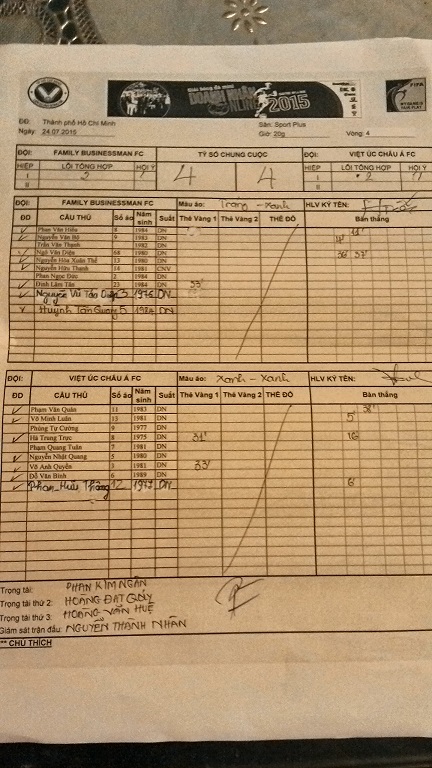 2015
FIFA
ĐĐ: Thành phố Hồ Chí Minh Sân: Sport Plus
Ngày: 24.07.2015 Giờ: 20g Vòng: 4
ĐỘI: FAMILY BUSINESSMAN FC TỶ SỐ CHUNG CUỘC ĐỘI: VIỆT ÚC CHÂU Á FC
HIỆP LỖI TỔNG HỢP HỘI Ý 4 4 HIỆP LỖI TỔNG HỢP HỘI Ý
I 2 I 2
II II
ĐỘI: FAMILY BUSINESSMAN FC Màu áo: Trắng - Xanh HLV KÝ TÊN:
ĐD CẦU THỦ Số áo Năm sinh Suất Thẻ Vàng 1 Thẻ Vàng 2 THẺ ĐỎ Bàn thắng
Phan Văn Hiếu 8 1984 DN 11'
Nguyễn Văn Bô 9 1983 DN
Trần Văn Thạnh 1982 DN
Ngô Văn Diện 68 1980 DN 36' 37'
Nguyễn Hòa Xuân Thế 13 1980 DN
Nguyễn Hữu Thanh 14 1981 CNV
Phan Ngọc Đức 2 1984 DN
Đinh Lâm Tân 23 1984 DN 33'
Nguyễn Vũ Tấn 3 1976 DN
Huỳnh Tấn Quang 5 DN
ĐỘI: VIỆT ÚC CHÂU Á FC Màu áo: Xanh - Xanh HLV KÝ TÊN:
ĐD CẦU THỦ Số áo Năm sinh Suất Thẻ Vàng 1 Thẻ Vàng 2 THẺ ĐỎ Bàn thắng
Phạm Văn Quân 11 1983 DN
Võ Minh Luân 13 1981 DN 5'
Phòng Tự Cường 9 1977 DN
Hà Trung Trực 8 1975 DN 31' 16'
Phạm Quang Tuân 7 1981 DN
Nguyễn Nhật Quang 5 1980 DN
Võ Anh Quyền 3 1981 DN 33'
Đỗ Văn Bình 6 1989 DN
Phan Hữu Thông 12 1977 DN 6'
Trọng tài: PHAN KIM NGÂN
Trọng tài thứ 2: HOÀNG ĐẠT
Trọng tài thứ 3: HOÀNG VĂN HUỆ
Giám sát trận đấu: NGUYỄN THÀNH NHÂN
** CHÚ THÍCH